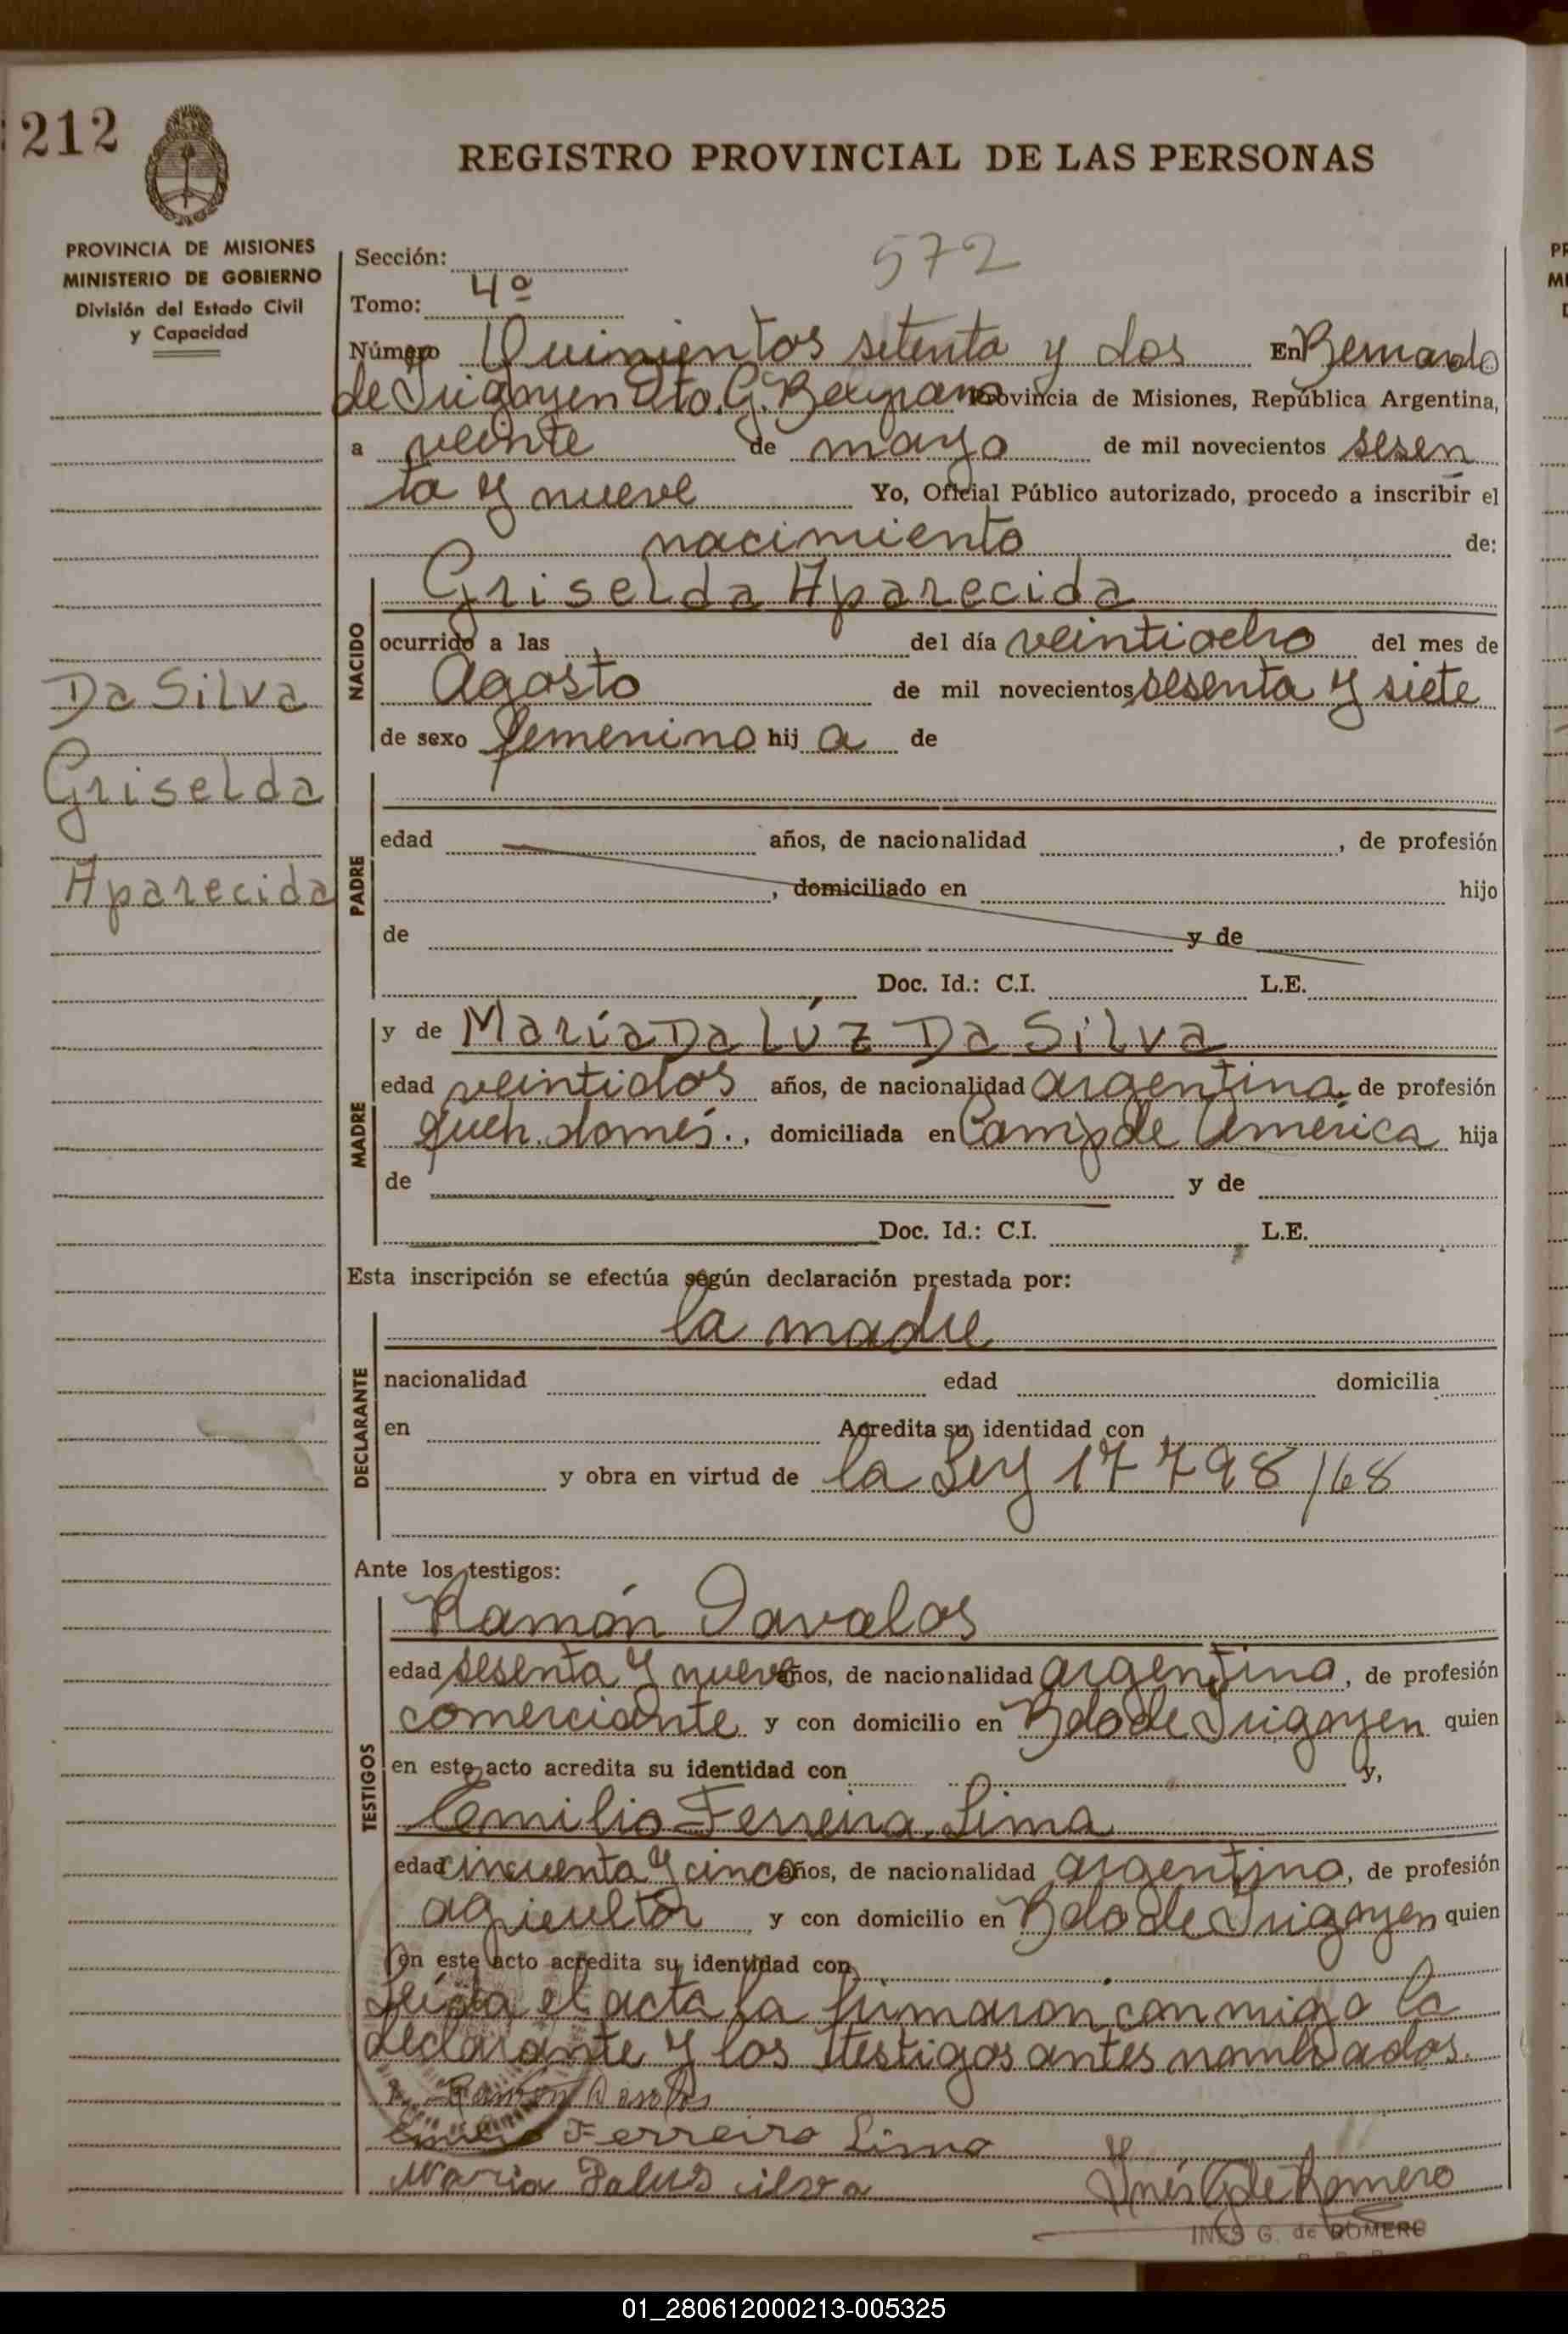 212
REGISTRO PROVINCIAL DE LAS PERSONAS
PROVINCIA DE MISIONES
MINISTERIO DE GOBIERNO
División del Estado Civil
y Capacidad
Sección:
572
Tomo: 4º
Número Quinientos setenta y dos En Bernardo
de Irigoyen Dto. G. Belgrano Provincia de Misiones, República Argentina,
a veinte de mayo de mil novecientos sesen
ta y nueve Yo, Oficial Público autorizado, procedo a inscribir el
nacimiento de:
NACIDO
Griselda Aparecida
ocurrido a las del día veintiocho del mes de
Agosto de mil novecientos sesenta y siete
de sexo femenino hij a de
Da Silva
Griselda
Aparecida
PADRE
edad años, de nacionalidad , de profesión
, domiciliado en hijo
de y de
Doc. Id.: C.I. L.E.
MADRE
y de María Da Lúz Da Silva
edad veintidos años, de nacionalidad argentina, de profesión
queh. domés., domiciliada en Camp de América hija
de y de
Doc. Id.: C.I. L.E.
Esta inscripción se efectúa según declaración prestada por:
DECLARANTE
la madre
nacionalidad edad domicilia
en Acredita su identidad con
y obra en virtud de la Ley 17798/68
Ante los testigos:
TESTIGOS
Ramón Davalos
edad sesenta y nueve años, de nacionalidad argentina, de profesión
comerciante y con domicilio en Bdo de Irigoyen quien
en este acto acredita su identidad con y,
Emilio Ferreira Lima
edad cincuenta y cinco años, de nacionalidad argentino, de profesión
agricultor y con domicilio en Bdo de Irigoyen quien
en este acto acredita su identidad con
Leída el acta la firmaron conmigo la
declarante y los testigos antes nombrados.
Ramon
Emilio Ferreira Lima
Maria Daluz silva
Inés G de Romero
INES G. de ROMERO
01_280612000213-005325